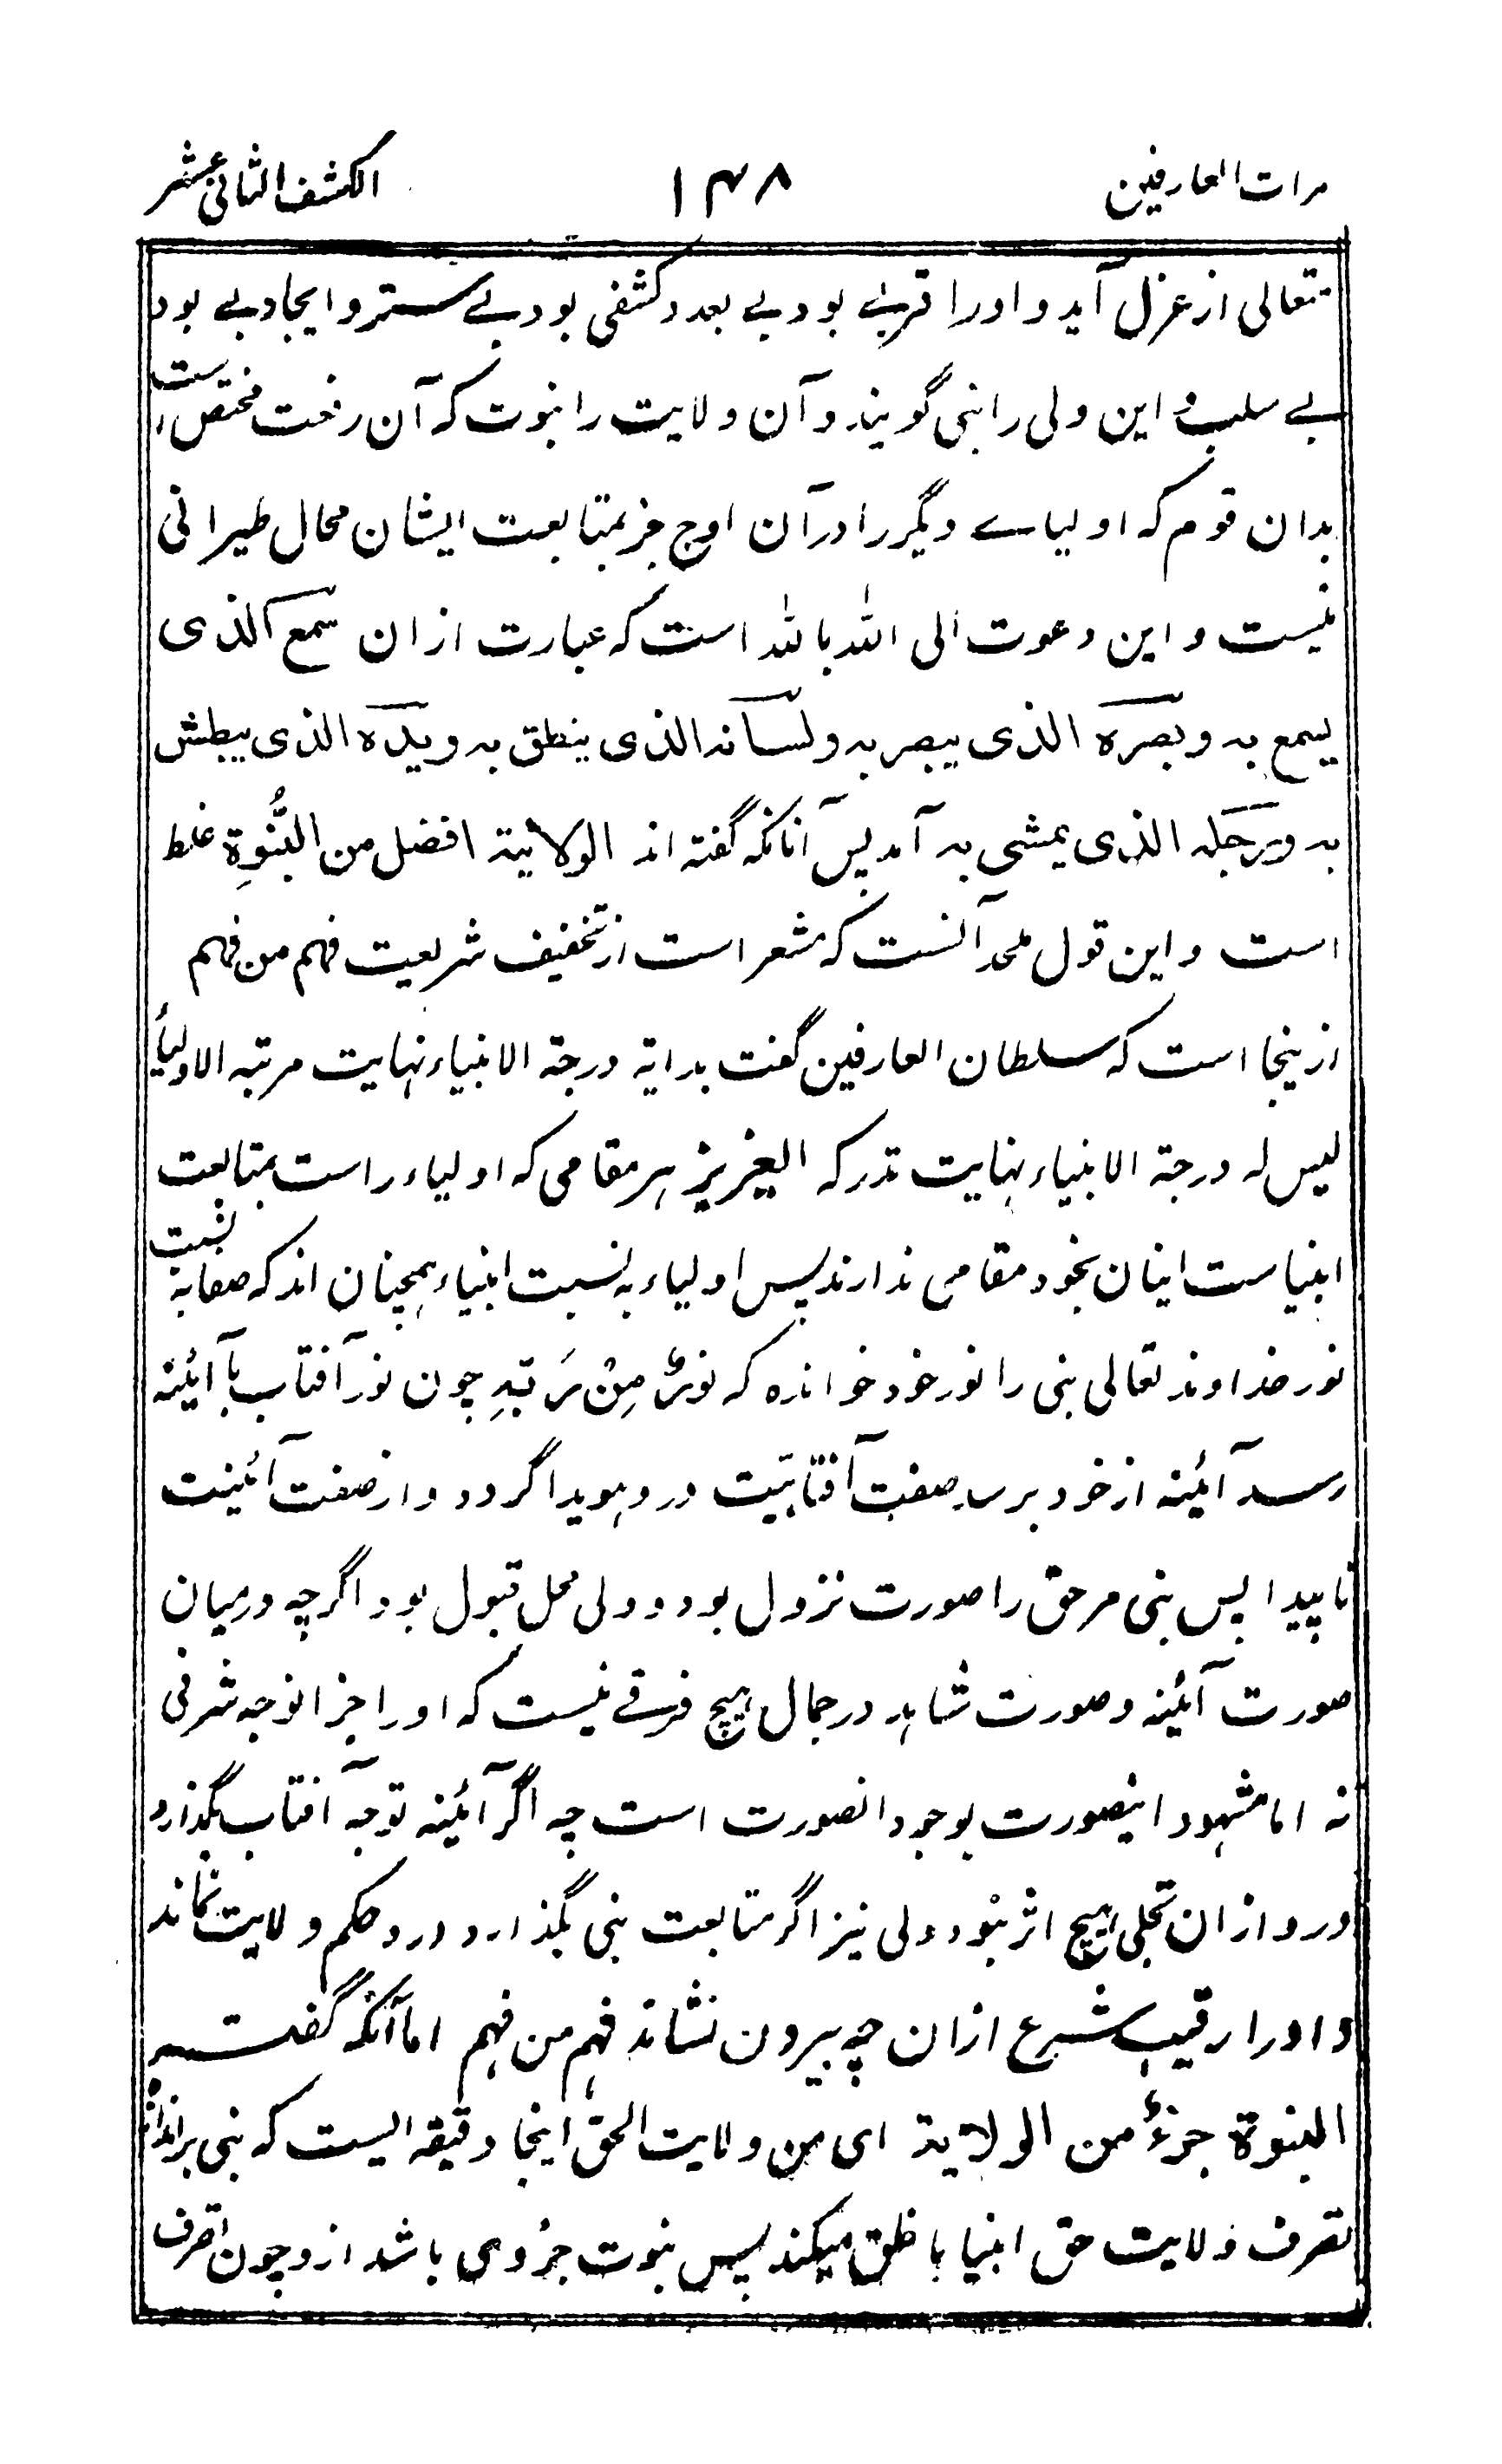 مرات العارفین ۱۴۸ الکشف الثانی عشر
تعالی از عزل آید و اورا قربے بود بے بعد و کشفی بود بے ستر و ایجادے بود
بے سلب و این ولی را نبی گویند و آن ولایت را نبوت که آن رفعت مختص است
بدان قوم که اولیاے دیگر را در آن اوج جز بمتابعت ایشان محال طیرانی
نیست و این دعوت الی الله بالله است که عبارت از ان سمعه الذی
یسمع به و بصره الذی یبصر به ولسانه الذی ینطق به ویده الذی یبطش
به ورجله الذی یمشی به آمد پس آنانکه گفته اند الولایة افضل من النُّبوةِ غلط
است و این قول ملحد آنست که مشعر است از تخفیف شریعت فهم من فهم
ازینجا است که سلطان العارفین گفت بدایة درجة الانبیاء نهایت مرتبه الاولیأ
لیس له درجة الانبیاء نهایت تدرکه العزیز هر مقامی که اولیاء راست بمتابعت
انبیاست اینان بخود مقامی ندارند پس اولیاء به نسبت انبیاء همچنان اند که صحابه نسبت
نور خداوند تعالی نبی را نور خود خوانده که نورٌ مِنْ رَبِّهِ چون نور آفتاب بآ ائینه
رسد آئینه از خود برسد صفت آفتابیت درو هویدا گردد و از صفت آئینیت
ناپیدا پس نبی مر حق را صورت نزول بود و ولی محل قبول بود اگرچه درمیان
صورت آئینه و صورت شاهد در جمال هیچ فرقے نیست که اورا جز انوجه شرفی
نه اما شهود اینصورت بوجود انصورت است چه اگر آئینه توجه آفتاب بگذارد
درو از ان تجلی هیچ اثر نبود ولی نیز اگر متابعت نبی بگذارد درو حکم ولایت نماند
و اورا رقیب شرع ازان چه بیرون نشاند فهم من فهم اما آنکه گفت
النبوة جزءٌ من الولایة ای من ولایت الحق اینجا دقیقه ایست که نبی بر اندازه
تصرف ولایت حق انبیا با خلق میکند پس نبوت جزوی باشد ازو چون تصرف